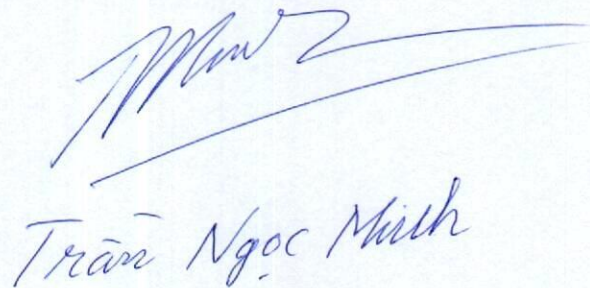 Trần Ngọc Minh